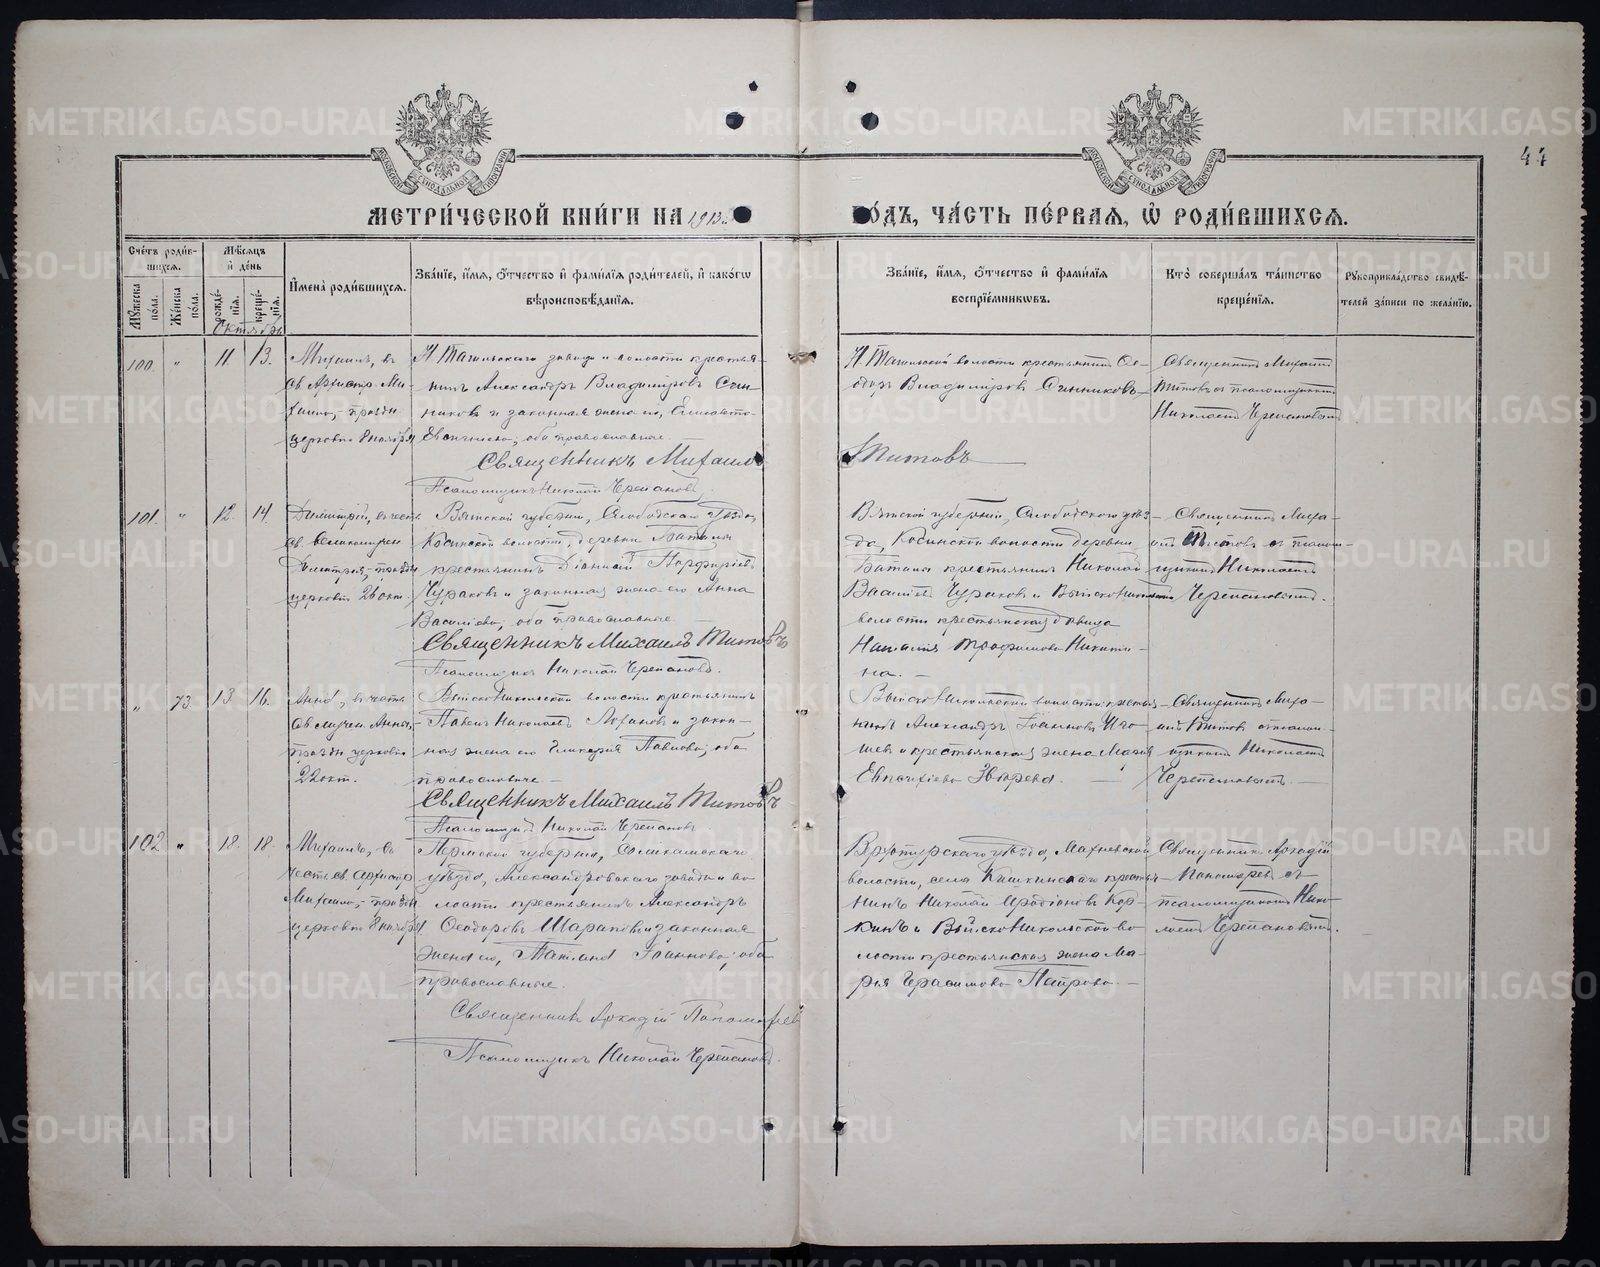 44
МЕТРИЧЕСКОЙ КНИГИ НА 1913 ГОДЪ, ЧАСТЬ ПЕРВАЯ, Ѡ РОДИВШИХСЯ.
Счетъ родившихся.
Мужеска пола.
Женска пола.
Мѣсяцъ и день
рожденія.
крещенія.
Имена родившихся.
Званіе, имя, отчество и фамилія родителей, и какого
вѣроисповѣданія.
Званіе, имя, отчество и фамилія
воспріемниковъ.
Кто совершалъ таинство
крещенія.
Рукоприкладство свидѣ-
телей записи по желанію.
Октябрь
100. " 11. 13.
Михаилъ, въ
св. Архистр. Ми-
хаила,- праздн.
церковію 8 ноября
Н. Тагильскаго завода и волости крестья-
нинъ Александръ Владиміровъ
и законная жена его, Елисавета
оба православные.
Священникъ Михаилъ Титовъ
Псаломщикъ Николай Черепановъ
Н. Тагильской волости крестьянинъ Ѳе-
одоръ Владиміровъ
Священникъ Михаилъ
Титовъ съ псаломщикомъ
Николаемъ Черепановымъ
101. " 12. 14.
Димитрій, въ честь
св. великомучен.
Димитрія,- праздн.
церковію 26 окт.
Вятской губерніи, Слободскаго уѣзда,
волости, деревни
крестьянинъ Діонисій Порфирьевъ
Чураковъ и законная жена его Анна
Васильева, оба православные.
Священникъ Михаилъ Титовъ
Псаломщикъ Николай Черепановъ.
Вятской губерніи, Слободского уѣз-
да, волости деревни
крестьянинъ Николай
Василіевъ Чураковъ и Выйско-Никольской
волости крестьянская дѣвица
Наталія Трофимова Никити-
на.
Священникъ Миха-
илъ Титовъ съ псалом-
щикомъ Николаемъ
Черепановымъ.
" 73. 13 16.
Анна, въ честь
св. мучен. Анны,-
праздн. церковію
22 окт.
Выйско-Никольской волости крестьянинъ
Павелъ Николаевъ и закон-
ная жена его Гликерія Павлова, оба
православные
Священникъ Михаилъ Титовъ
Псаломщикъ Николай Черепановъ
Выйско-Никольской волости крестья-
нинъ Александръ Іоанновъ
и крестьянская жена Марія
Священникъ Миха-
илъ Титовъ съ псалом-
щикомъ Николаемъ
Черепановымъ.
102 " 18. 18.
Михаилъ, въ
честь св. архистр.
Михаила,- праздн.
церковію 8 ноября
Пермской губерніи, Соликамскаго
уѣзда, Александровскаго завода и во-
лости крестьянинъ Александръ
Ѳеодоровъ Шараповъ и законная
жена его, Татіана Іоаннова, оба
православные.
Священникъ Аркадій Пономаревъ
Псаломщикъ Николай Черепановъ.
Верхотурскаго уѣзда, Махневской
волости, села Кишкинскаго крестья-
нинъ Николай Иродіоновъ Кор-
кинъ и Выйско-Никольской во-
лости крестьянская жена Ма-
рія Герасимова
Священникъ Аркадій
Пономаревъ съ
псаломщикомъ Нико-
лаемъ Черепановымъ.
METRIKI.GASO-URAL.RU